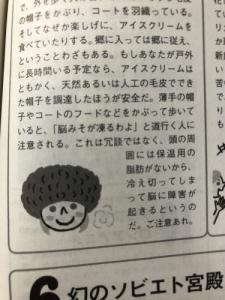 の帽子をかぶり、コートを羽織っている。
そしてなぜか楽しげに、アイスクリームを
食べていたりする。郷に入っては郷に従え、
ということわざもある。もしあなたが戸外
に長時間いる予定なら、アイスクリームは
ともかく、天然あるいは人工の毛皮ででき
た帽子を調達したほうが安全だ。薄手の帽
子やコートのフードなどをかぶって歩いて
いると、「脳みそが凍るわよ」と道行く人に
注意される。これは冗談ではなく、頭の周
囲には保温用の
脂肪がないから、
冷え切ってしま
って脳に障害が
起きるというの
だ。ご注意あれ。
6 幻のソビエト宮殿